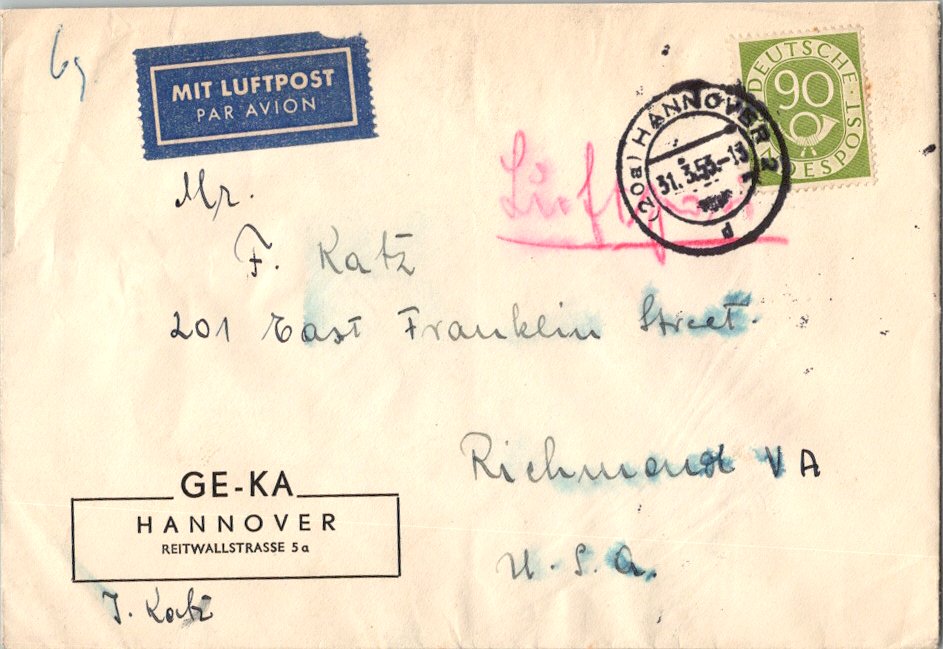 6g
MIT LUFTPOST
PAR AVION
DEUTSCHE
90
POST
(20a) HANNOVER 2
31.3.53.-13
p
Luftpost
Mr.
F. Katz
201 East Franklin Street.
Richmond VA
U.S.A.
GE-KA
HANNOVER
REITWALLSTRASSE 5a
J. Katz